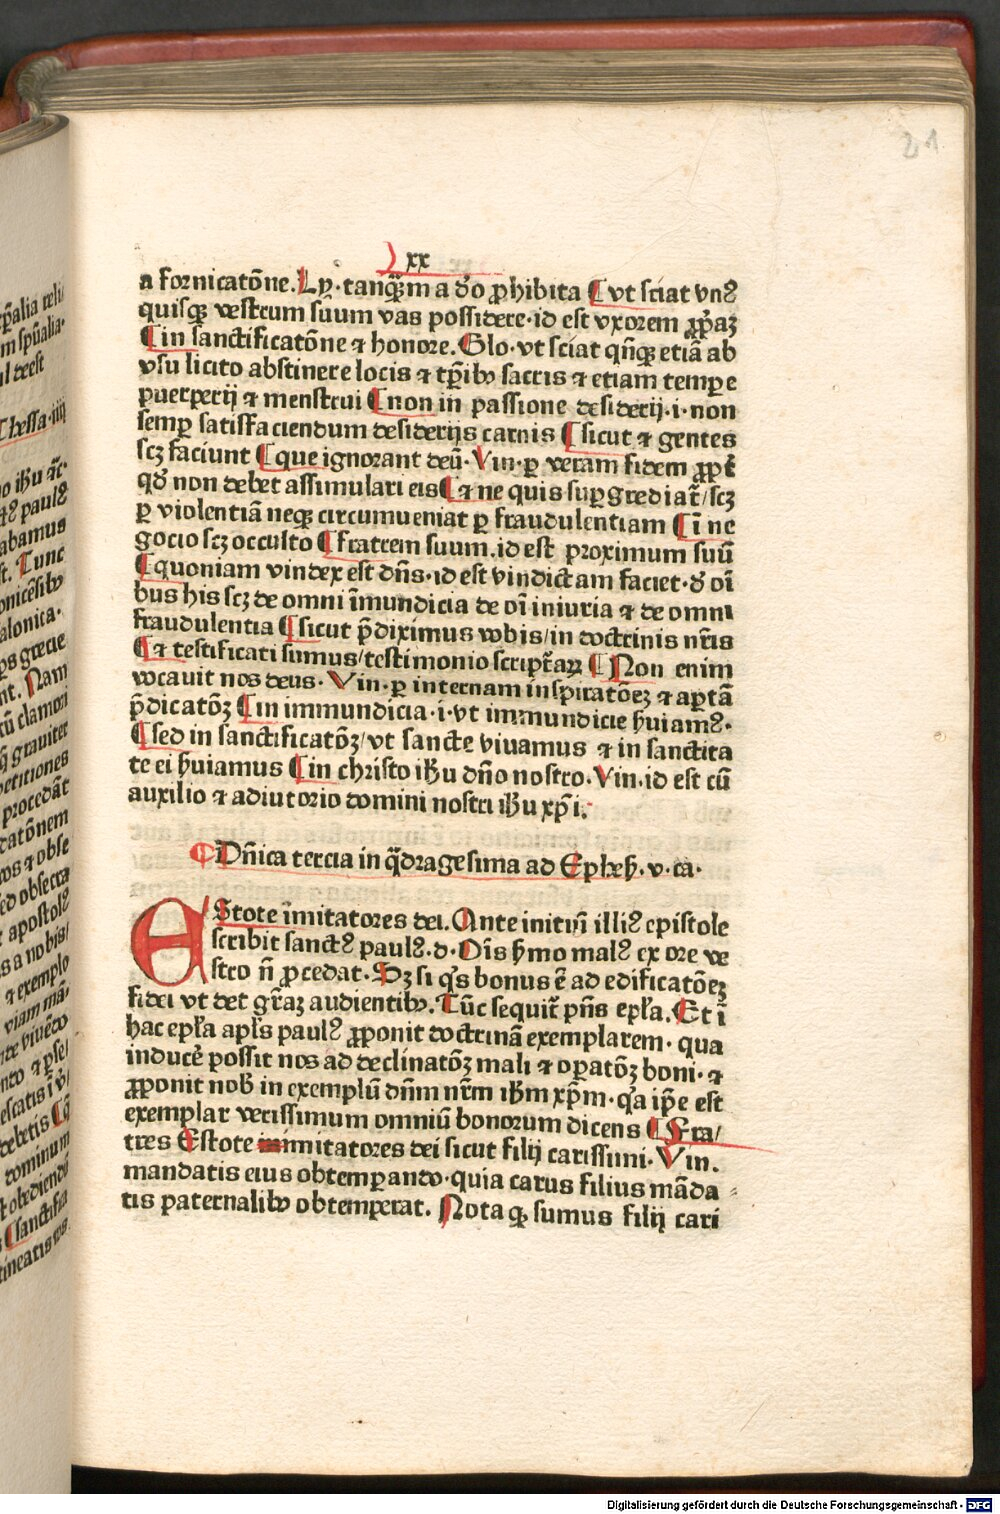 21
xx
a fornicatōne. Ly. tanq̄ꝫ m a ꝺo ꝓhibita ¶ vt sciat vnꝰ
quisqꝫ vestrum suum vas possidere. id est vxorem ꝓpaꝫ
¶ in sanctificatōne ⁊ honore. Glo. vt sciat qn̄qꝫ etiā ab
vsu licito abstinere locis ⁊ tp̄ibꝰ sacris ⁊ etiam tempe
puerperij ⁊ menstrui ¶ non in passione desiderij. i. non
semꝑ satisfaciendum desiderijs carnis ¶ sicut ⁊ gentes
scꝫ faciunt ¶ que ignorant deū. Vin. ꝑ veram fidem
qꝺ non debet assimulari eis ¶ ⁊ ne quis suꝑgrediat̄/ scꝫ
ꝑ violentiā neqꝫ circumueniat ꝑ fraudulentiam ¶ ī ne
gocio scꝫ occulto ¶ fratrem suum. id est proximum suū
¶ quoniam vindex est dn̄s. id est vindictam faciet. ꝺ oī
bus his scꝫ de omni īmundicia de oī iniuria ⁊ de omni
fraudulentia ¶ sicut p̄diximus vobis/ in doctrinis nr̄is
¶ ⁊ testificati sumus/ testimonio script̄aꝝ ¶ Non enim
vocauit nos deus. Vin. ꝑ internam inspiratōeꝫ ⁊ aꝑtā
p̄dicatōꝫ ¶ in immundicia. i. vt immundicie ẜuiamꝰ.
¶ sed in sanctificatōꝫ/ vt sancte viuamus ⁊ in sanctita
te ei ẜuiamus ¶ in christo ihu dn̄o nostro. Vin. id est cū
auxilio ⁊ adiutorio domini nostri ihu xp̄i.
¶ Dn̄ica tercia in q̄dragesima ad Epheẜ. v. ca.
EStote īmitatores dei. Ante initiū illiꝰ epistole
scribit sanctꝰ paulꝰ. d. Oīs ẜmo malꝰ ex ore ve
stro n̄ ꝓcedat. Sꝫ si q̇s bonus ē ad edificatōeꝫ
fidei vt det gr̄aꝫ audientibꝰ. Tūc sequit̄ pn̄s epl̄a. Et ī
hac epl̄a apl̄s paulꝰ ꝓponit doctrinā exemplarem. qua
inducē possit nos ad declinatōꝫ mali ⁊ oꝑatōꝫ boni. ⁊
ꝓponit nob̄ in exemplū dn̄m nr̄m ihm xp̄m. q̇a ip̄e est
exemplar verissimum omniū bonorum dicens ¶ Fra/
tres Estote immitatores dei sicut filij carissimi. Vin.
mandatis eius obtemꝑando. quia carus filius māda
tis paternalibꝰ obtemꝑat. Nota qꝫ sumus filij cari
Digitalisierung gefördert durch die Deutsche Forschungsgemeinschaft - DFG